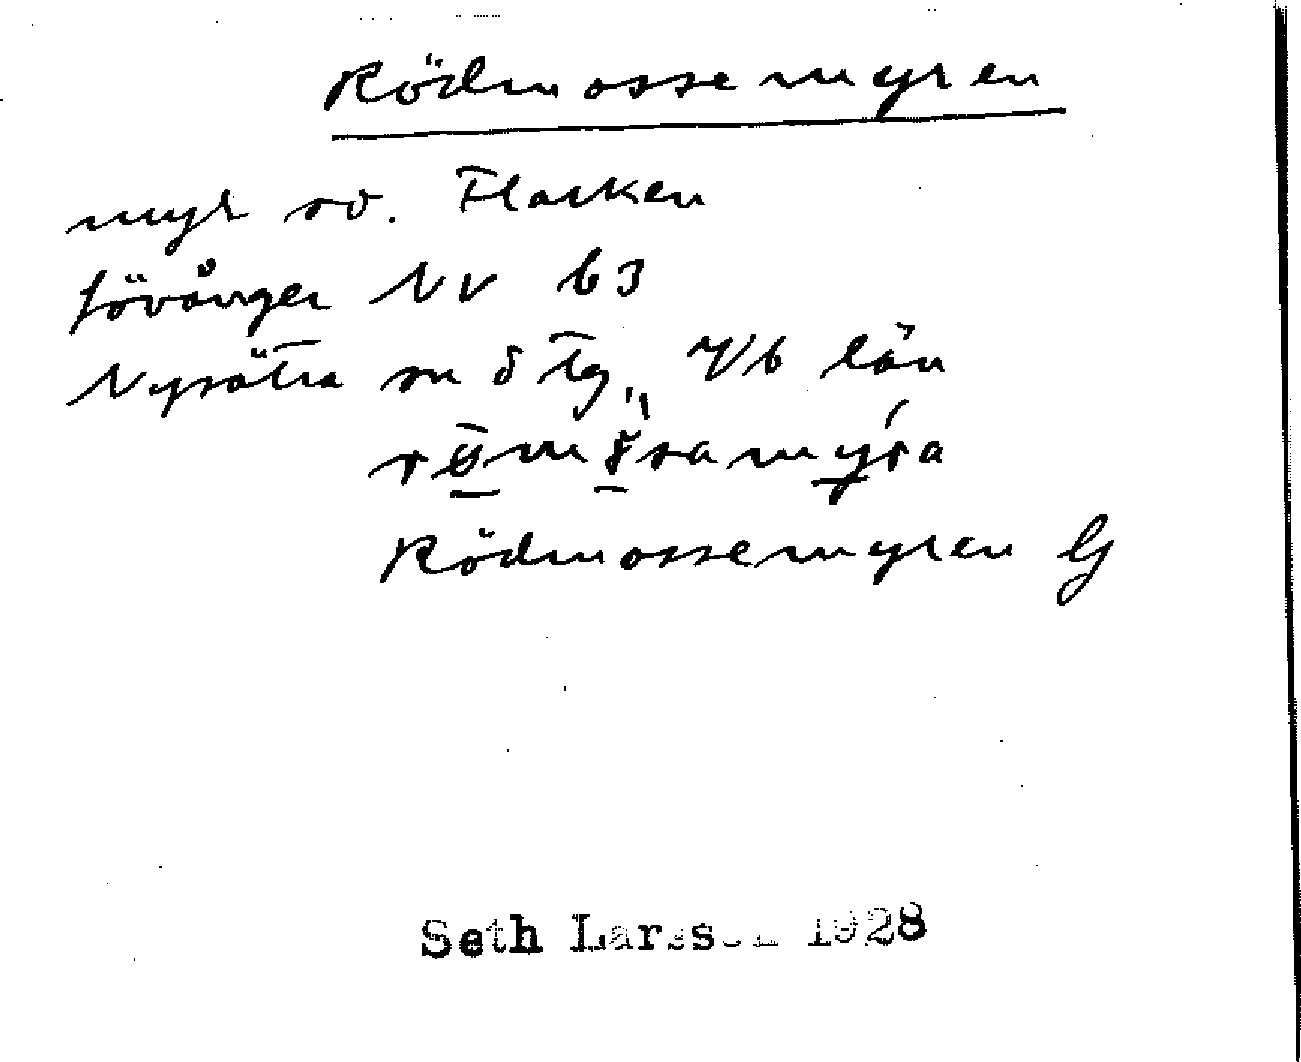 Rödmossemyren
myr sv. Flarken
Lövånger NV b3
Nysätra sn ö tg, Vb län
Rödmossemyren G
Seth Larsson 1928